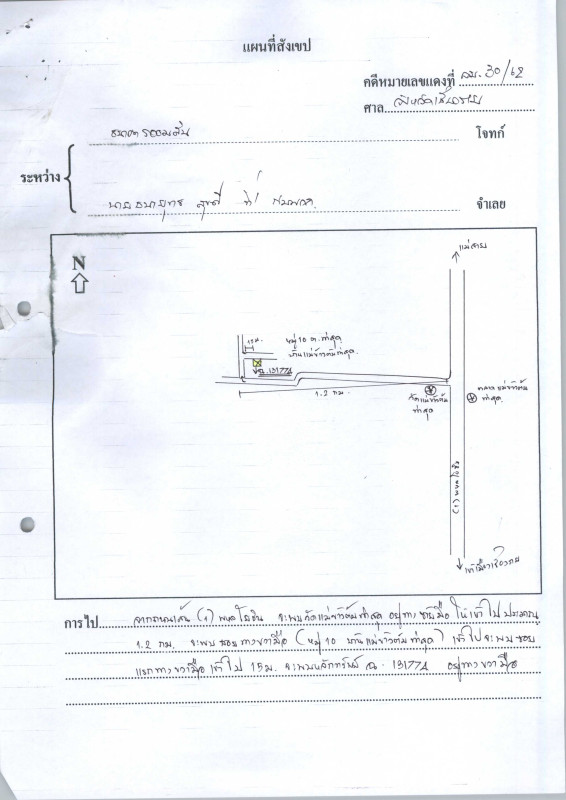 แผนที่สังเขป
คดีหมายเลขแดงที่ ลม.30/62
ศาล จังหวัดเชียงราย
ธนาคารออมสิน โจทก์
ระหว่าง
นายธนายุทธ ที่ จำเลย
N
แม่สาย
15 ม.
หมู่ 10 ต.ท่าสุด
บ้านแม่ข้าวต้มท่าสุด
ฉ.13177A
1.2 กม.
วัดแม่ข้าวต้ม
ท่าสุด
ตลาดแม่ข้าวต้ม
ท่าสุด
(1) พหลโยธิน
เข้าเมืองเชียงราย
การไป จากถนนเส้น (1) พหลโยธิน จะพบวัดแม่ข้าวต้มท่าสุด อยู่ทางซ้ายมือ ให้เข้าไปประมาณ
1.2 กม. จะพบซอยทางขวามือ (หมู่ 10 บ้านแม่ข้าวต้มท่าสุด) เข้าไปจะพบซอย
แรกทางขวามือ เข้าไป 15 ม. จะพบหลักทรัพย์ ฉ.13177A อยู่ทางขวามือ